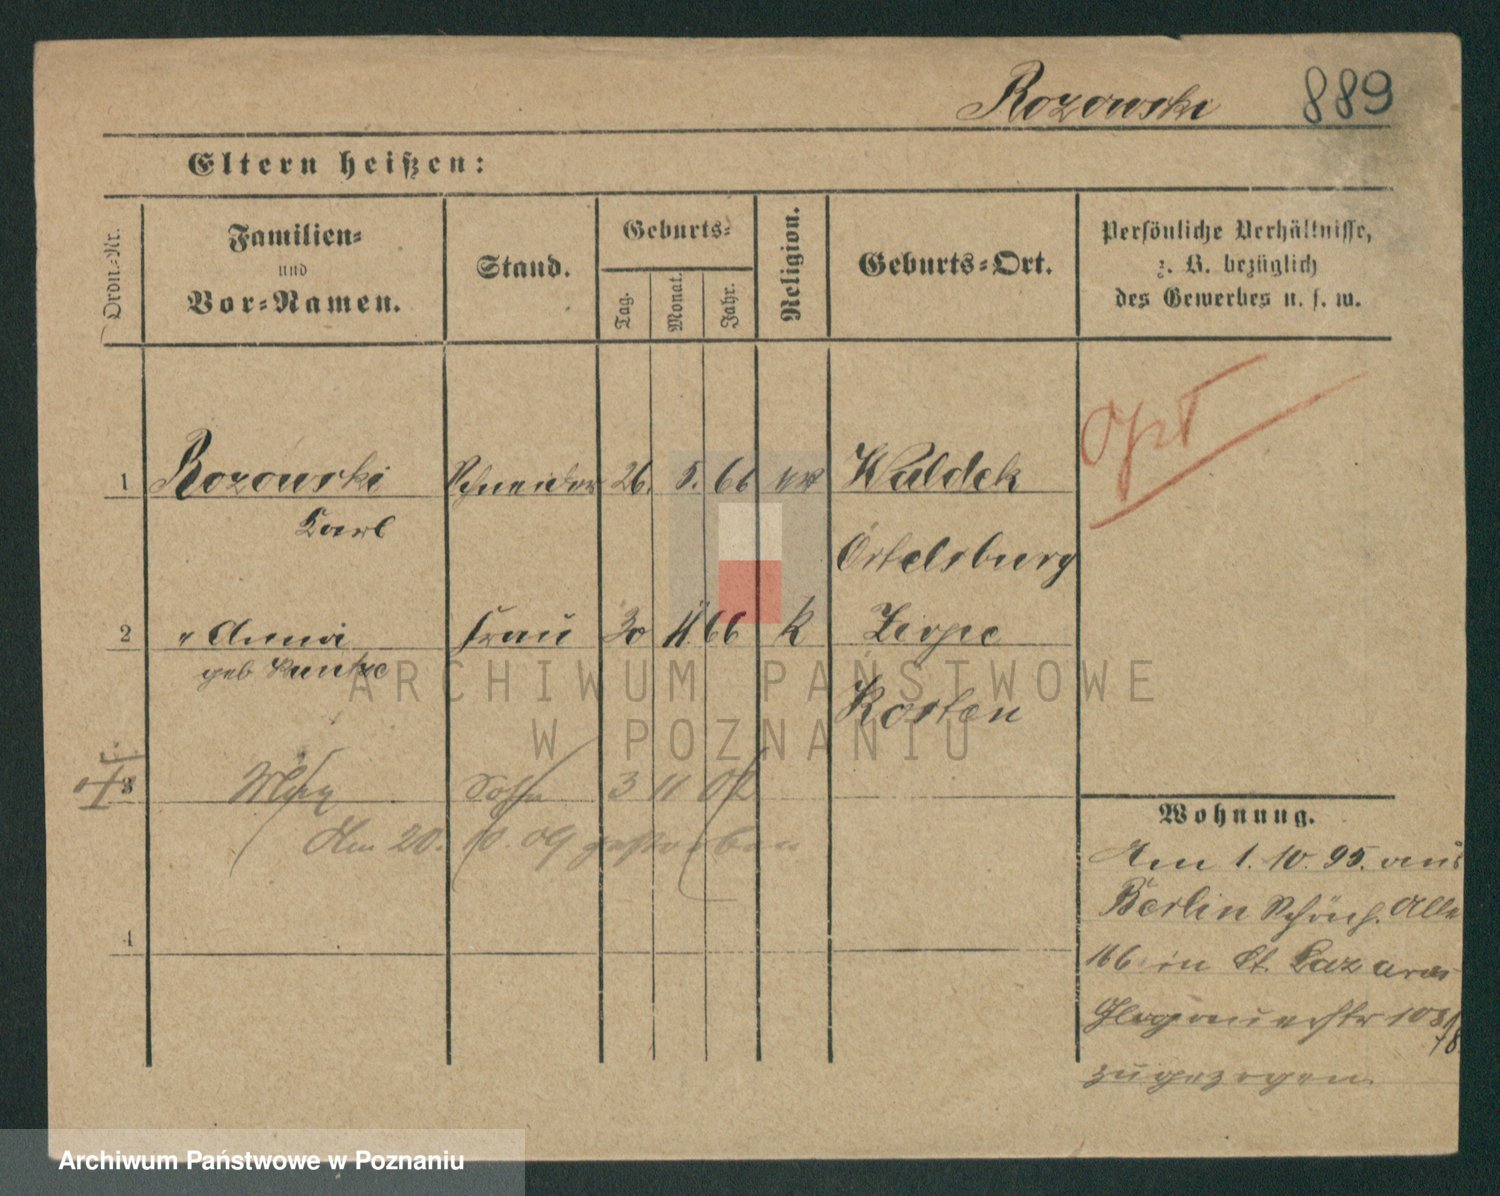 Rozowski 889
Eltern heißen:
Ordn.-Nr.
Familien-
und
Vor-Namen.
Stand.
Geburts-
Tag.
Monat.
Jahr.
Religion.
Geburts-Ort.
Persönliche Verhältnisse,
z. B. bezüglich
des Gewerbes u. s. w.
1 Rozowski Schneider 26. 5. 66 Waldek
Karl
Ortelsburg
2 " Anna Frau 30 11. 66 K Zirpe
geb Kuntze
Kosten
3 Max Sohn 3 11 02
Am 20. 10. 09 gestorben
4
Wohnung.
Am 1. 10. 95. aus
Berlin Schönh. Alle
166 in St. Lazarus
Glogauerstr 103
zugezogen
ARCHIWUM PAŃSTWOWE
W POZNANIU
Archiwum Państwowe w Poznaniu